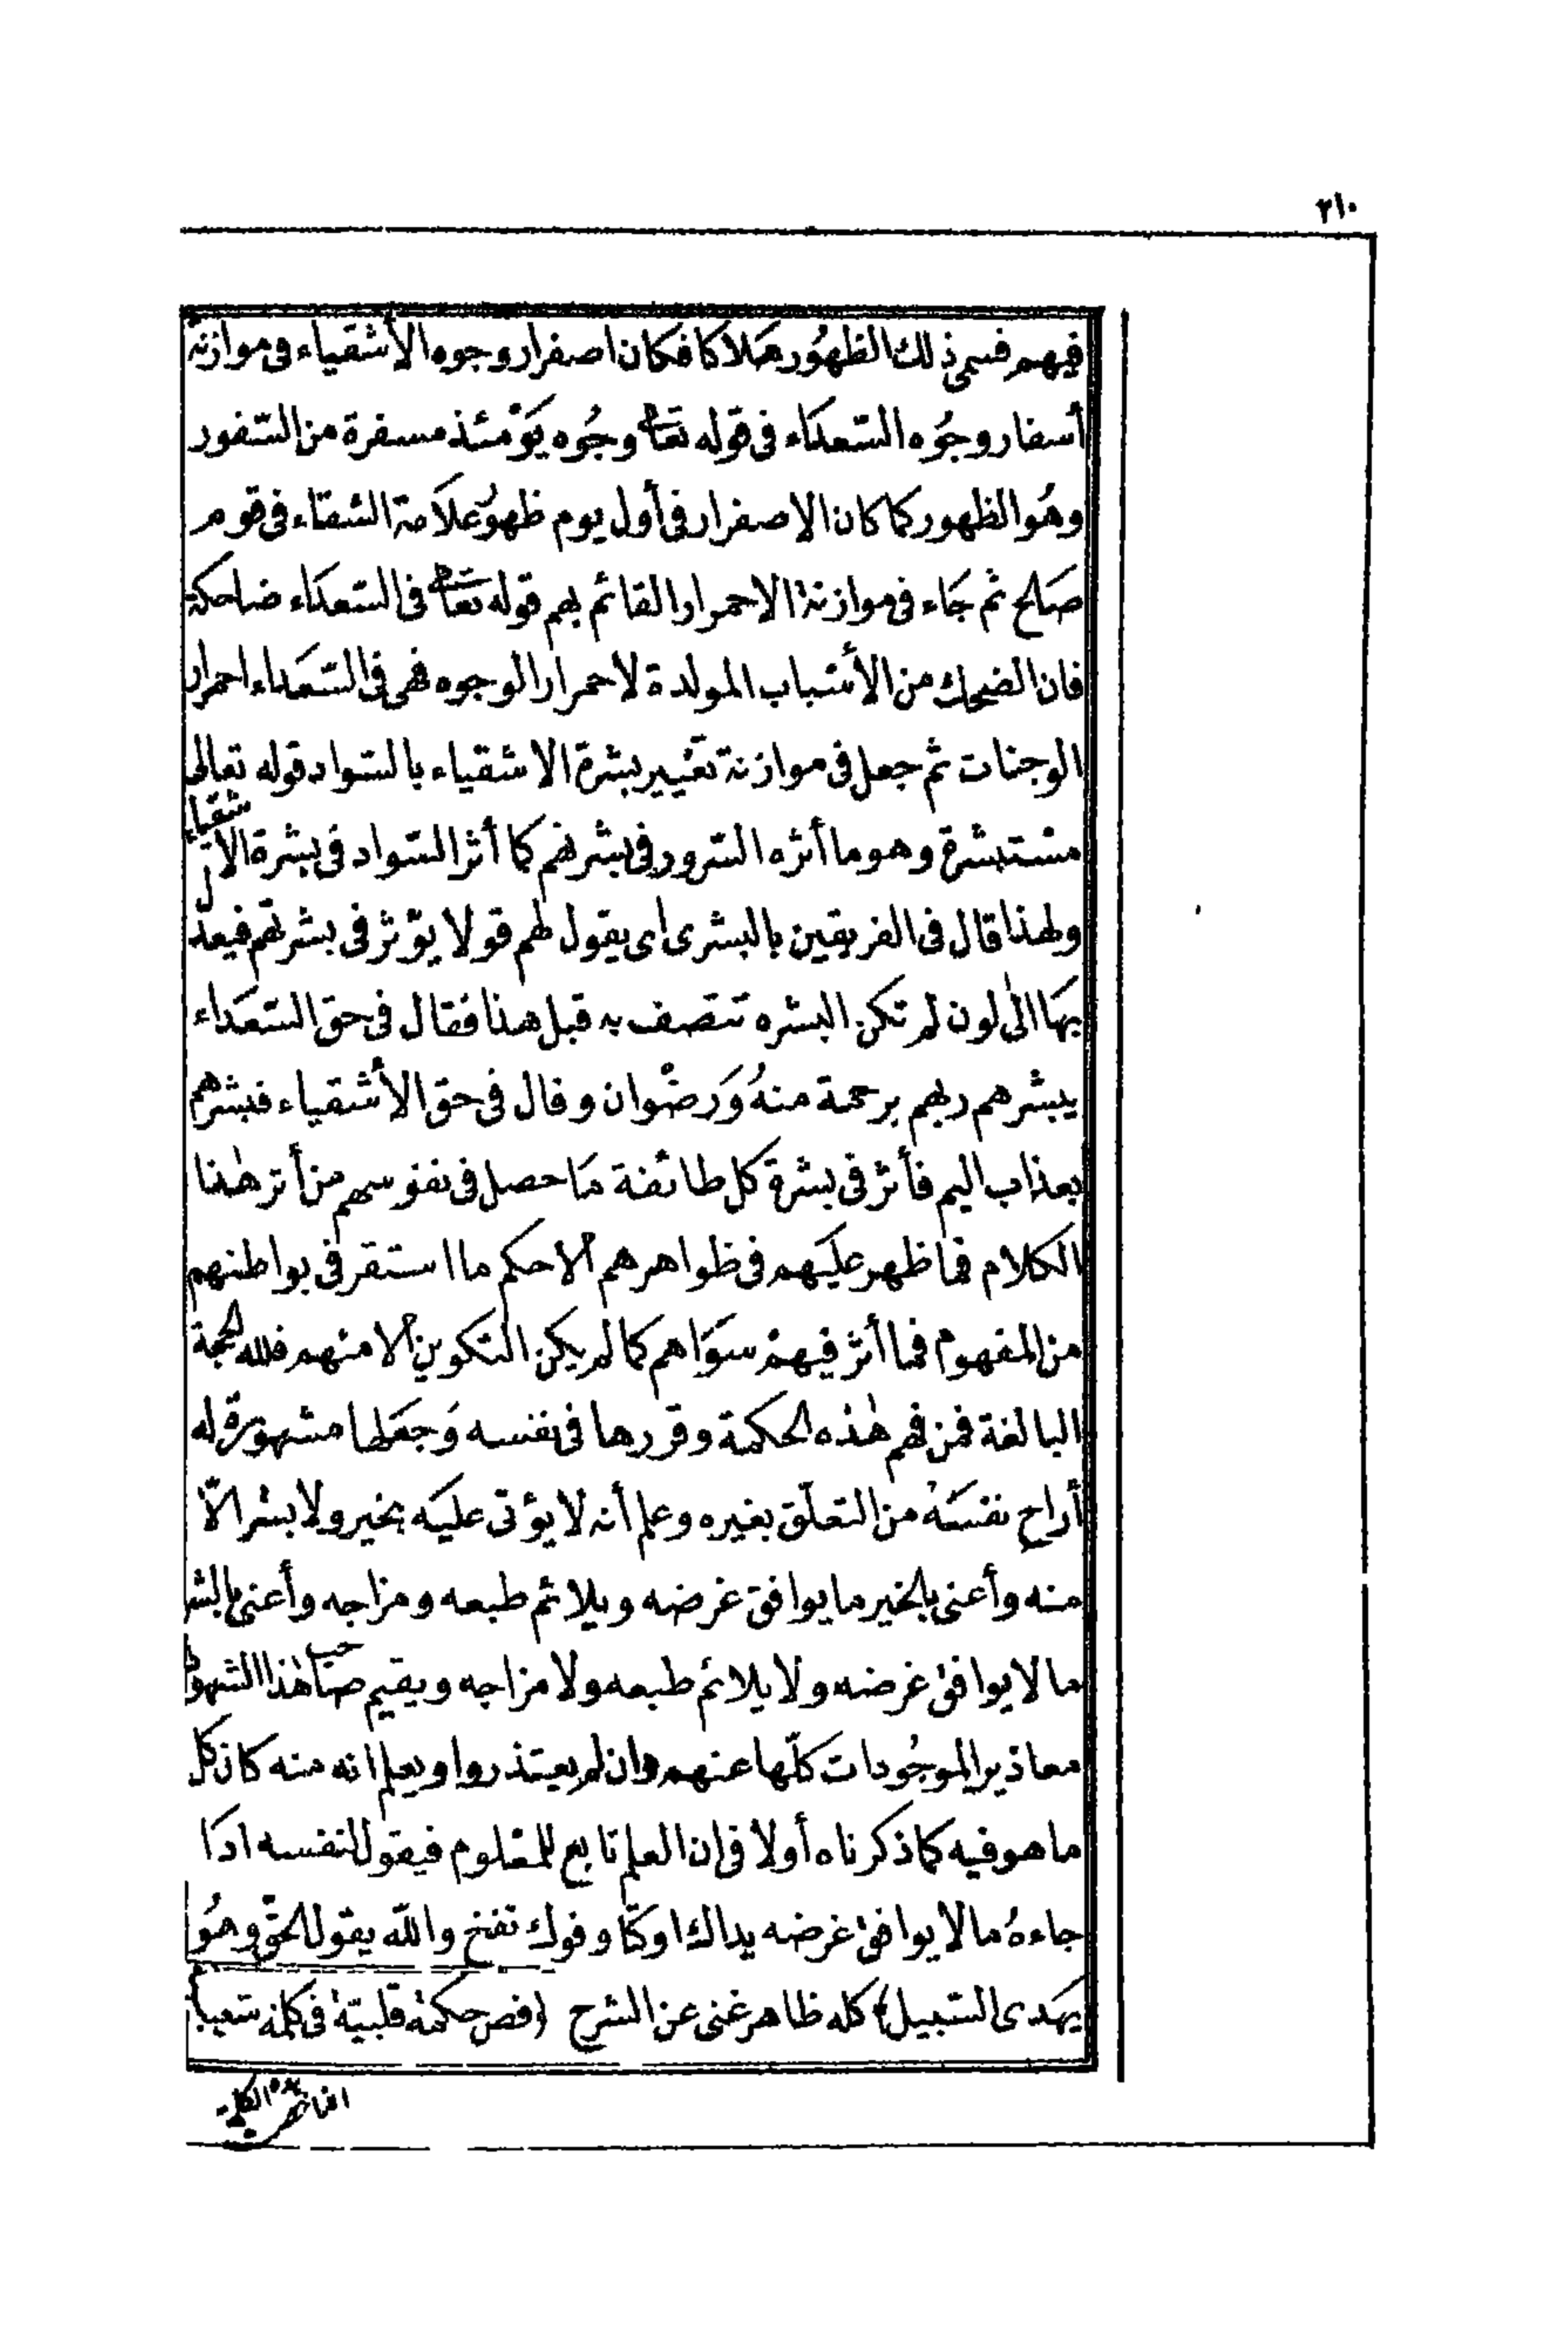 ٢١٠
فيهم فسمى ذلك الظهُور هَلاكا فكان اصفرار وجوه الأشقياء فى موازنة
أسفار وجُوه السّعدَاء فى قوله تعَالى وجُوه يَوْمئذ مسفرة من السّفور
وهُو الظهور كما كان الاصفرار فى أول يوم ظهوُر علاَمة الشقاء فى قوم
صَالح ثم جَاء فى موازنة الاحمرار القائم بهم قوله تعَالى فى السّعدَاء ضاحكة
فان الضحك من الأسْباب المولدة لاحمرار الوجوه فهى فى السّعَداء احمرار
الوجنات ثم جعل فى موازنة تغَيير بشرة الاشقياء بالسّواد قوله تعالى
مسْتبشرة وهو ما أثره السّرور فى بشرتهم كما أثر السّواد فى بشرة الاشقياء
ولهذا قال فى الفريقين بالبشرى اى يقول لهم قولا يؤثر فى بشرتهم فيعدل
بهَا الى لون لم تكن البشره تتصف به قبل هذا فقال فى حق السّعَداء
يبشرهم ربهم برحمة منهُ وَرضْوان وقال فى حق الأشقياء فبشرهم
بعذاب اليم فأثر فى بشرة كل طائفة مَا حصل فى نفوسهم من أثر هٰذا
الكلام فما ظهر عليَهم فى ظواهرهم الاحكم ما استقر فى بواطنهم
من المفهوم فما أثر فيهمْ سوَاهم كما لم يكن التكوين الا منهم فلله الحجة
البالغة فمن فهم هٰذه الحكمة وقررها فى نفسه وَجعَلها مشهورة له
أراح نفسَهُ من التعلّق بغيره وعلم أنه لا يؤتى عليَه بخير ولا بشر الاّ
منه وأعنى بالخير ما يوافق غرضه ويلائم طبعه ومزاجه وأعنى بالشر
ما لا يوافق غرضه ولا يلائم طبعه ولا مزاجه ويقيم صَاحب هٰذا الشهود
معاذير الموجُودات كلّها عنهم وان لم يعتذروا ويعلم انه منه كان كل
ما هو فيه كما ذكرناه أولا فى ان العلم تابع للمعْلوم فيقول لنفسه اذا
جاءهُ ما لا يوافق غرضه يداك اوكتا وفوك نفخ والله يقول الحقّ وهُو
يهَدى السّبيل﴾ كله ظاهر غنى عن الشرح ﴿فص حكمة قلبيّة فى كلمة شعيبية﴾